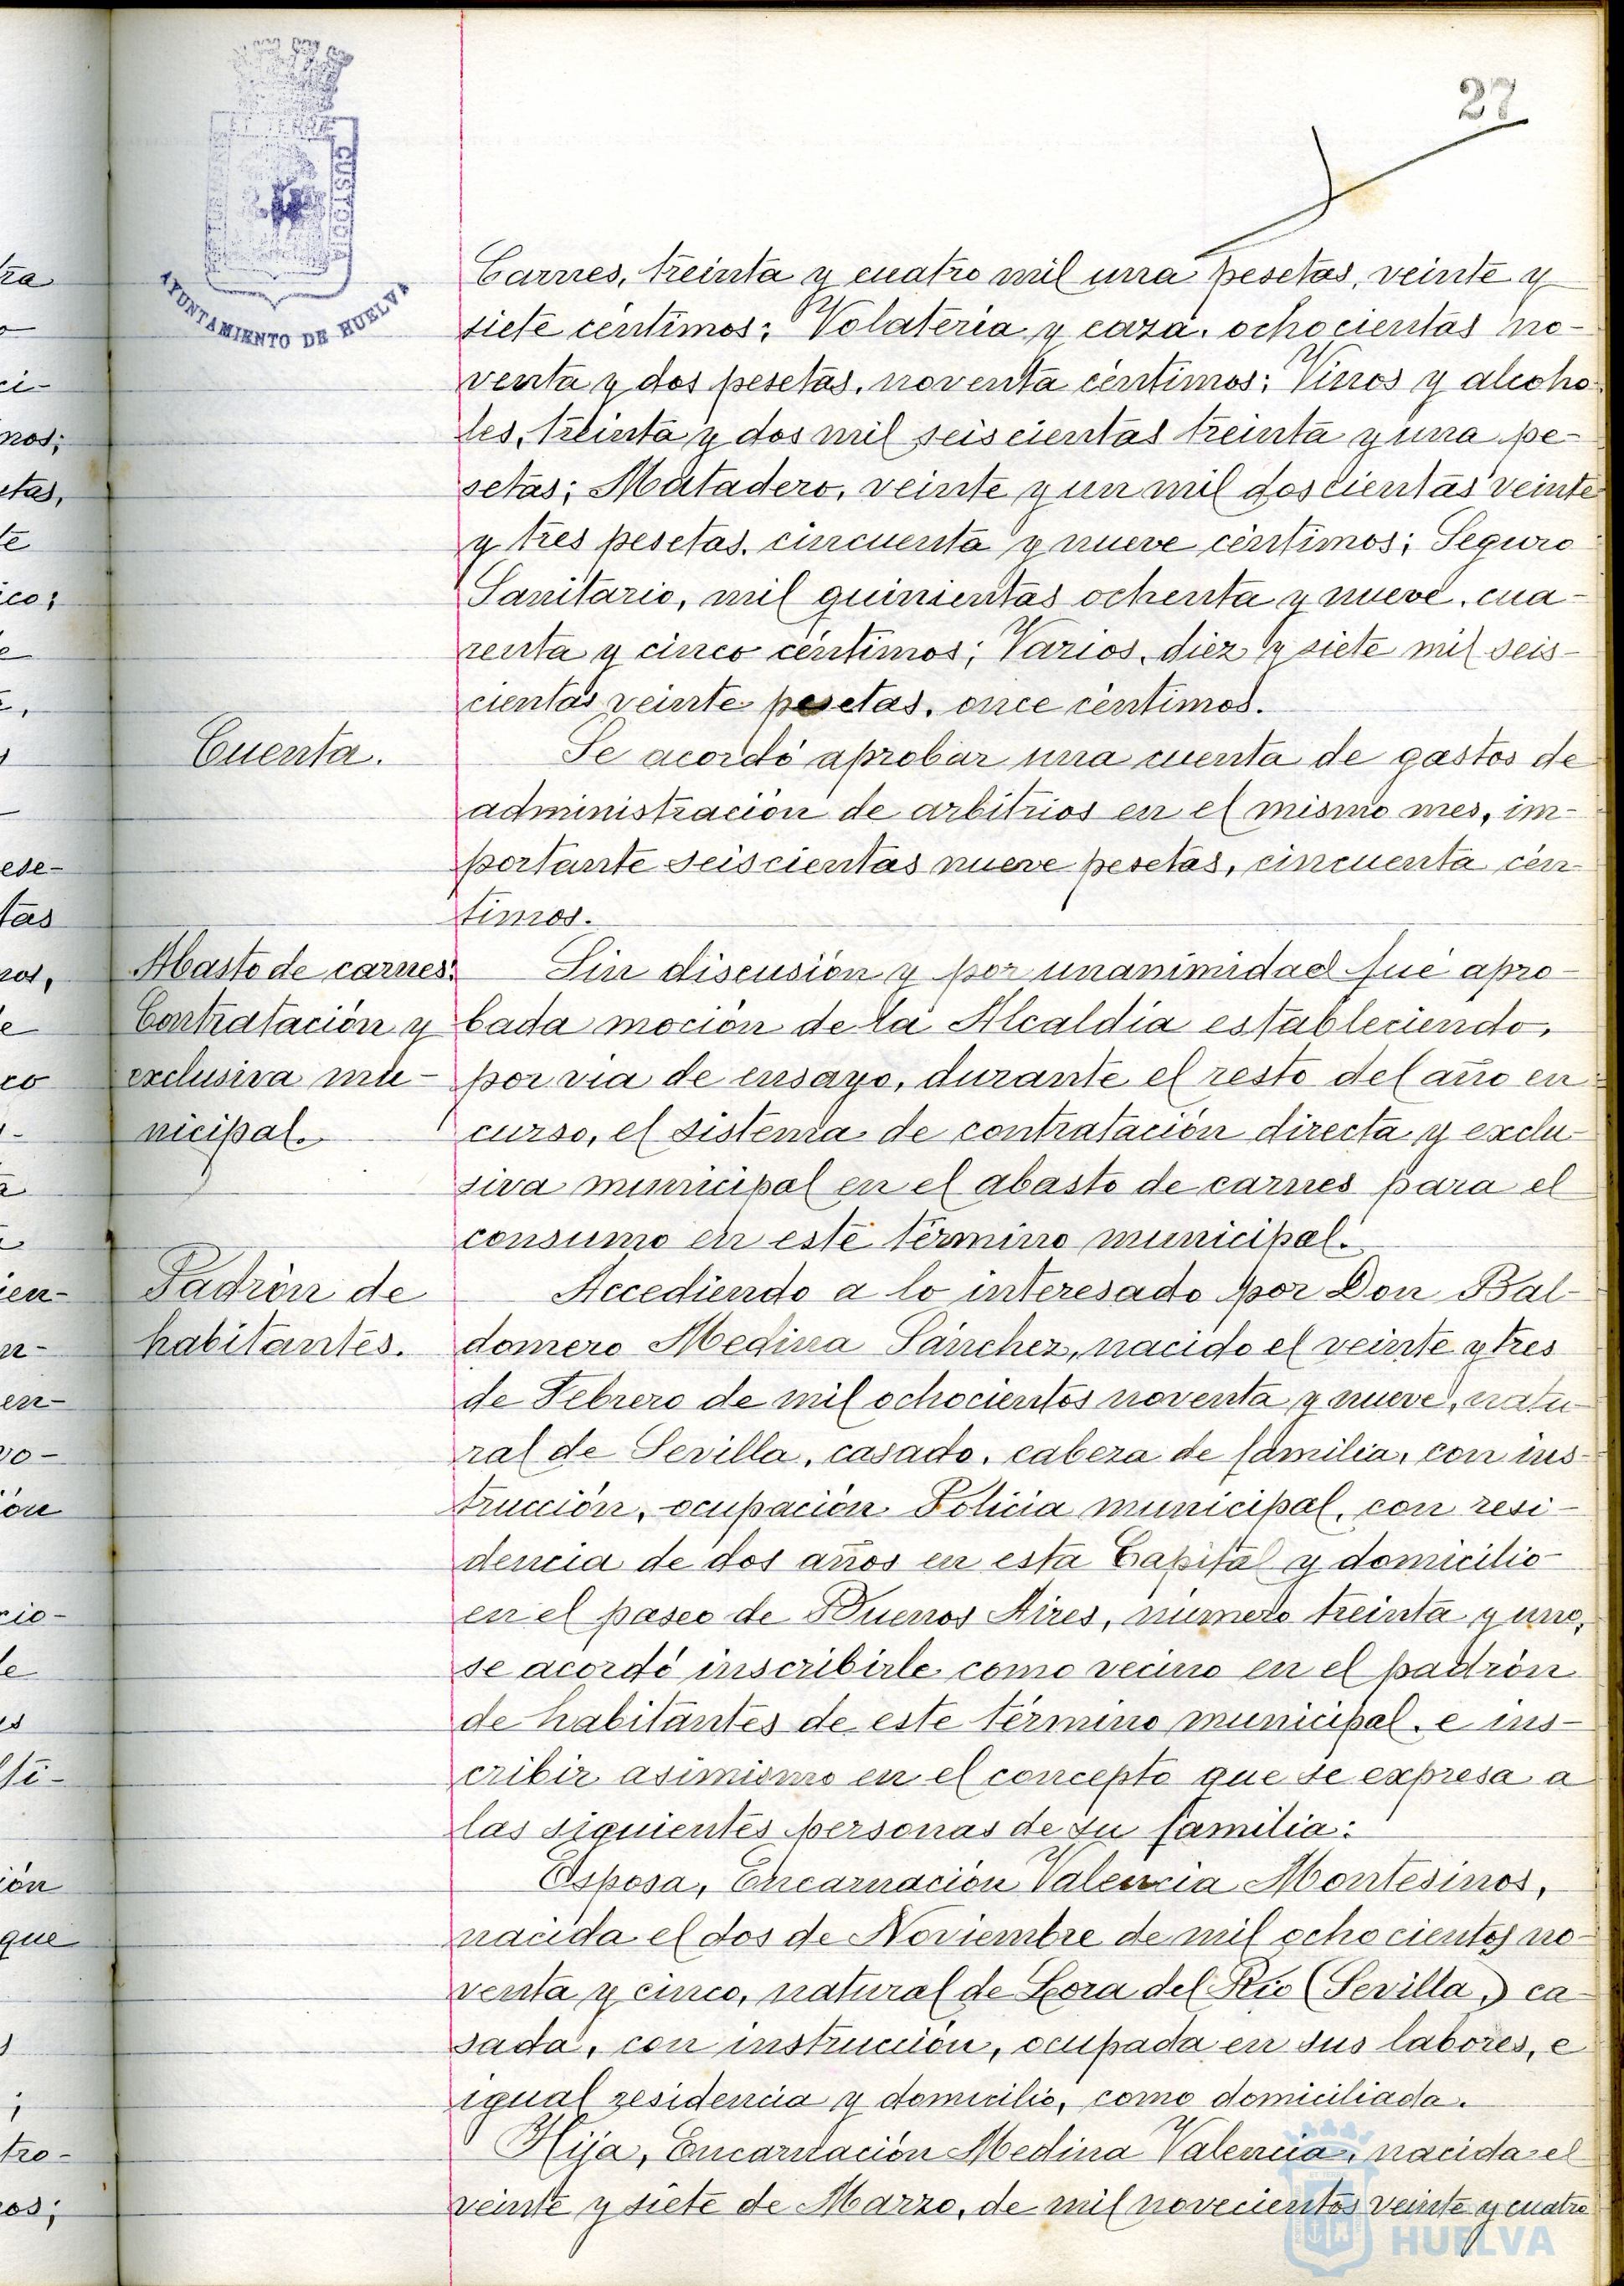 27
ET TERRÆ
CUSTODIA
AYUNTAMIENTO DE HUELVA
Carnes, treinta y cuatro mil una pesetas, veinte y
siete céntimos; Volateria y caza, ochocientas no-
venta y dos pesetas, noventa céntimos; Vinos y alcoho
les, treinta y dos mil seiscientas treinta y una pe-
setas; Matadero, veinte y un mil doscientas veinte
y tres pesetas, cincuenta y nueve céntimos; Seguro
Sanitario, mil quinientas ochenta y nueve, cua-
renta y cinco céntimos; Varios, diez y siete mil seis-
cientas veinte pesetas, once céntimos.
Cuenta.
Se acordó aprobar una cuenta de gastos de
administración de arbitrios en el mismo mes, im-
portante seiscientas nueve pesetas, cincuenta cén-
timos.
Abasto de carnes.
Contratación y
exclusiva mu-
nicipal.
Sin discusión y por unanimidad fué apro-
bada moción de la Alcaldía estableciendo,
por via de ensayo, durante el resto del año en
curso, el sistema de contratación directa y exclu-
siva municipal en el abasto de carnes para el
consumo en este término municipal.
Padrón de
habitantes.
Accediendo a lo interesado por Don Bal-
domero Medina Sánchez, nacido el veinte y tres
de Febrero de mil ochocientos noventa y nueve, natu-
ral de Sevilla, casado, cabeza de familia, con ins-
trucción, ocupación Policia municipal, con resi-
dencia de dos años en esta Capital y domicilio
en el paseo de Buenos Aires, número treinta y uno,
se acordó inscribirle como vecino en el padrón
de habitantes de este término municipal, e ins-
cribir asimismo en el concepto que se expresa a
las siguientes personas de su familia:
Esposa, Encarnación Valencia Montesinos,
nacida el dos de Noviembre de mil ochocientos no-
venta y cinco, natural de Lora del Rio (Sevilla,) ca
sada, con instrucción, ocupada en sus labores, e
igual residencia y domicilio, como domiciliada.
Hija, Encarnación Medina Valencia, nacida el
veinte y siete de Marzo, de mil novecientos veinte y cuatro
HUELVA